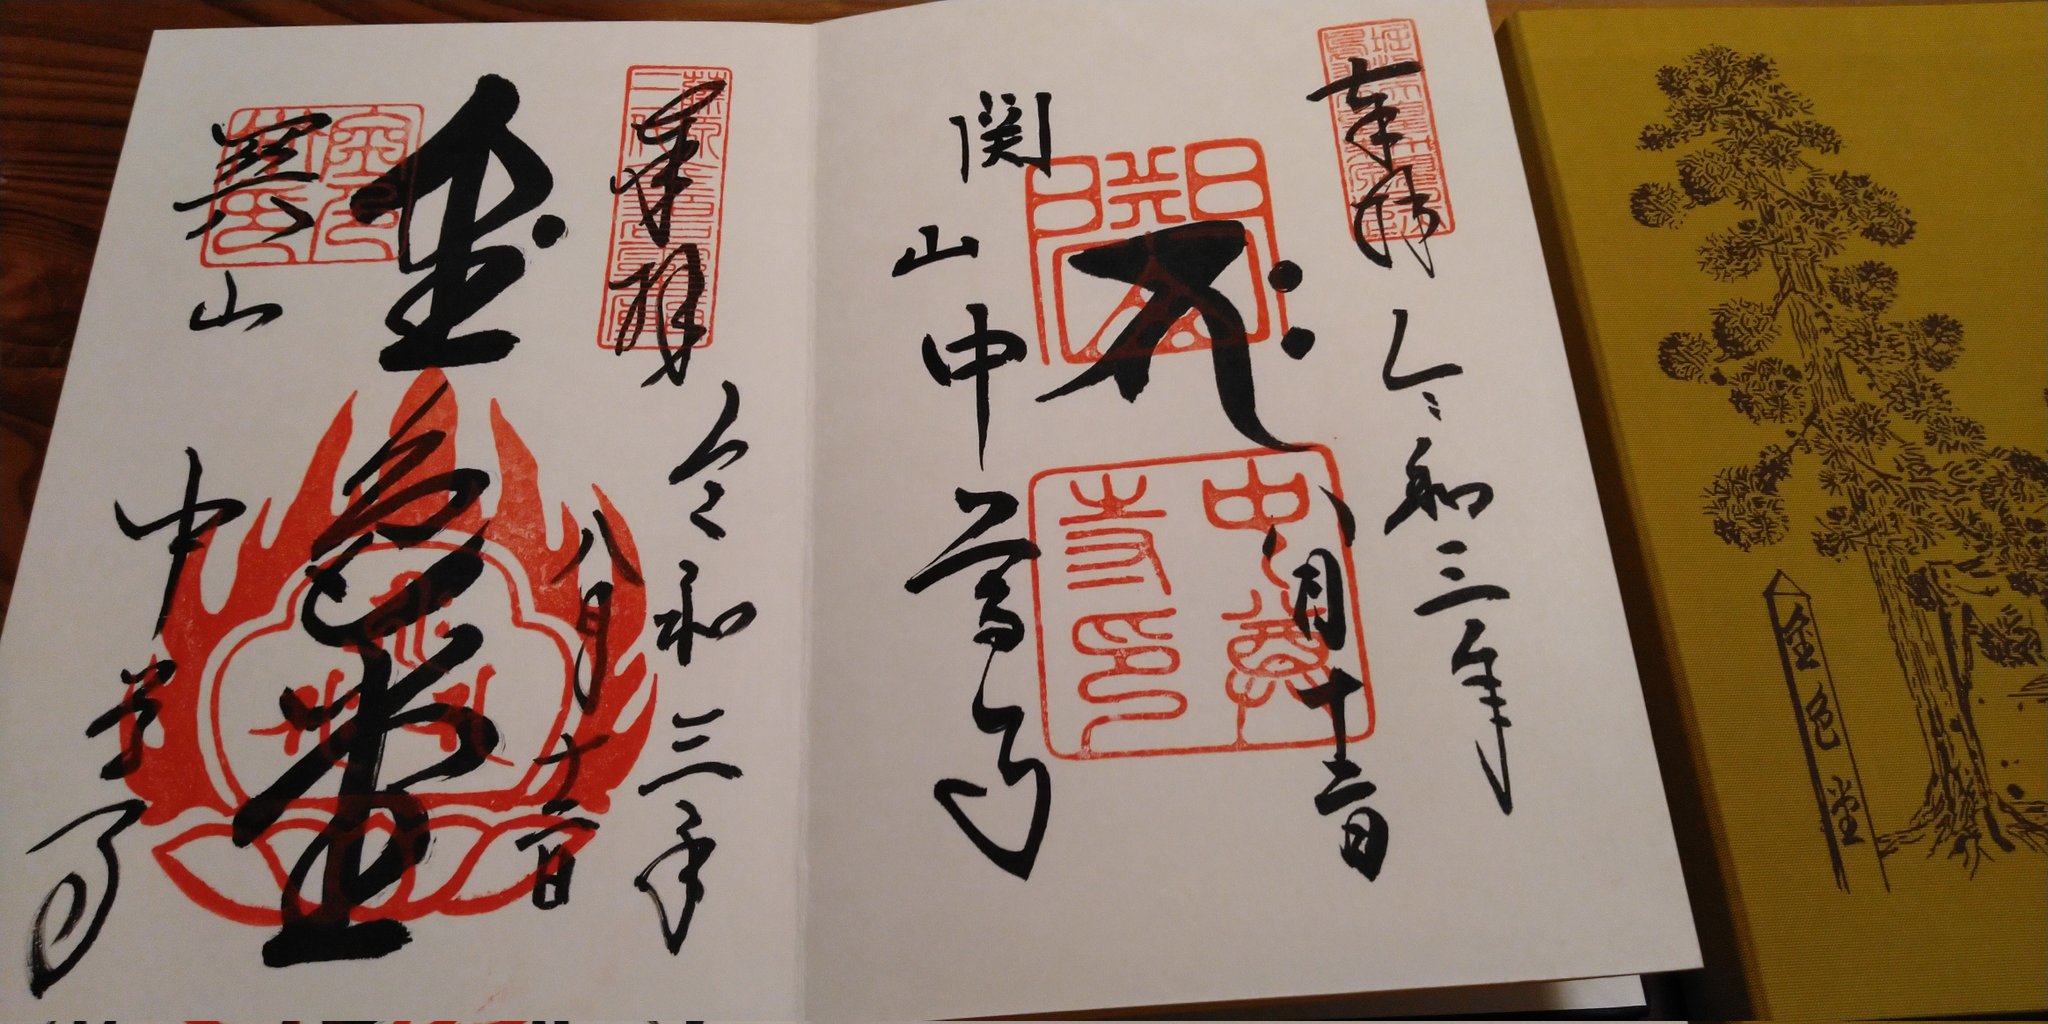 金色堂
奉拝
令和三年
八月十二日
中尊寺印
関山中尊寺
奉拝
令和三年
八月十二日
金色堂
関山
中尊寺